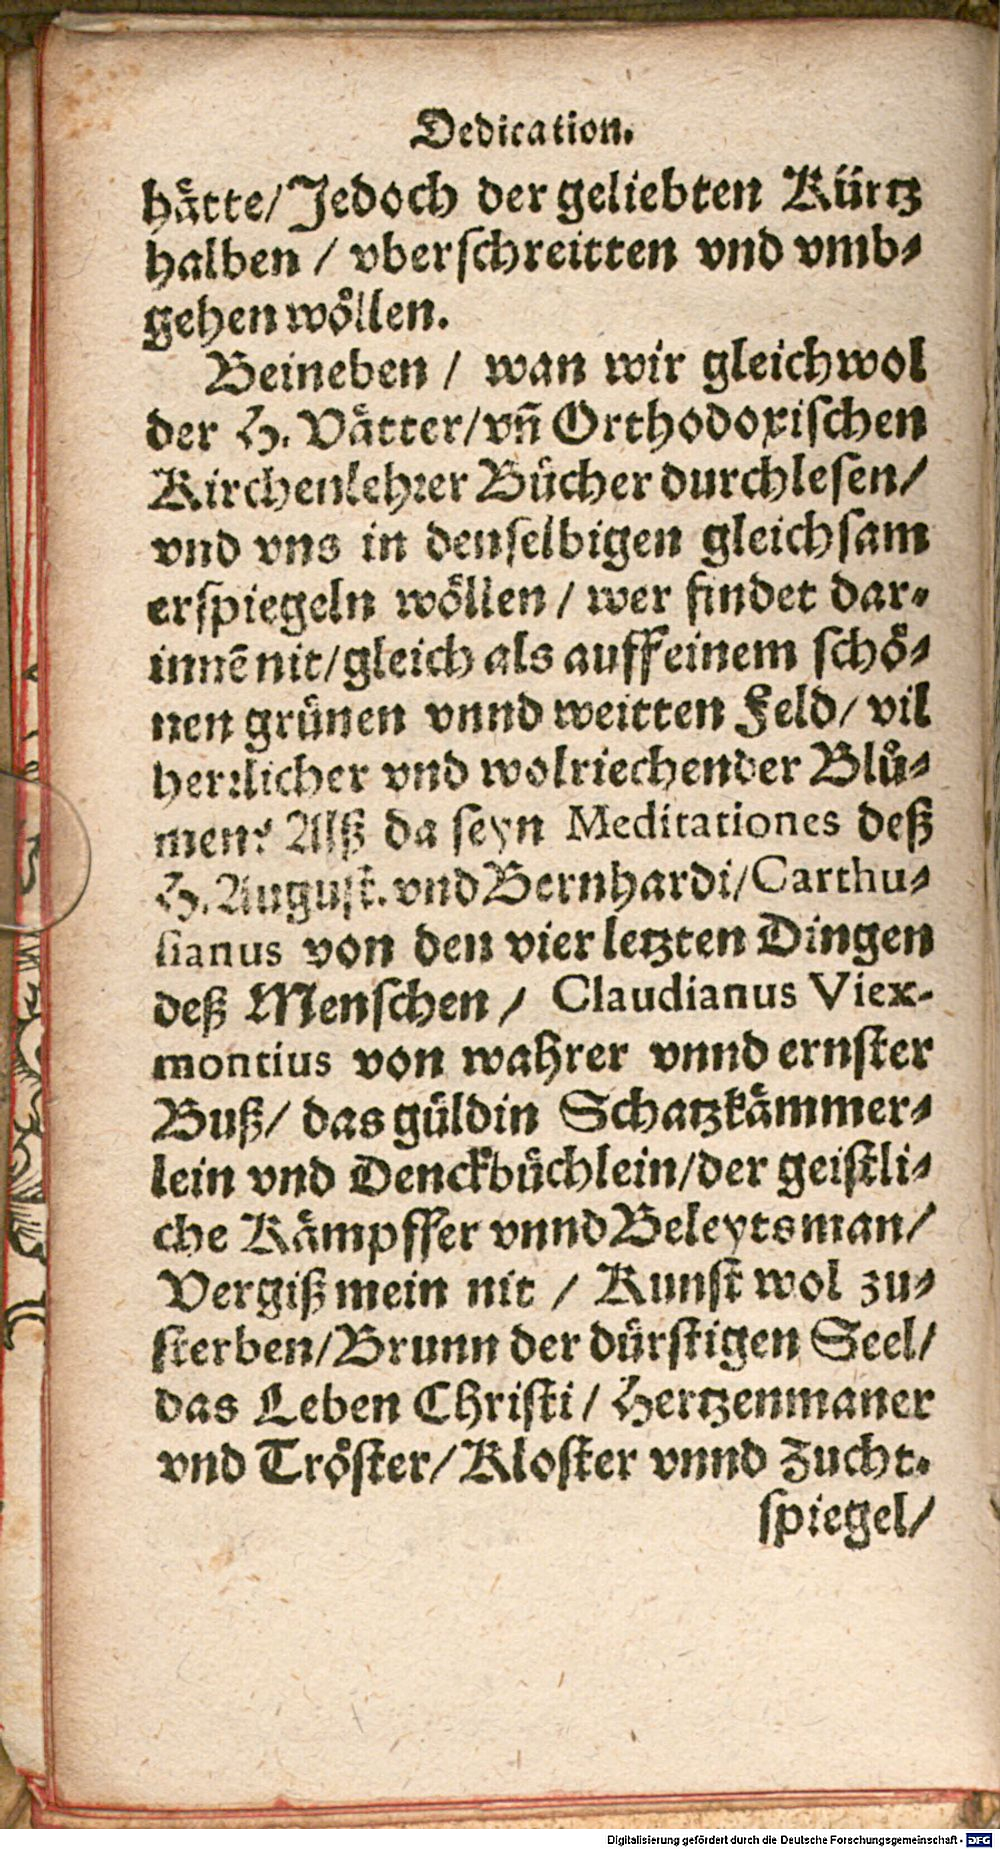 Dedication.
hätte/ Jedoch der geliebten Kürtz
halben / vberschreitten vnd vmb-
gehen wöllen.
Beineben / wan wir gleichwol
der H. Vätter/ vñ Orthodoxischen
Kirchenlehrer Bücher durchlesen/
vnd vns in denselbigen gleichsam
erspiegeln wöllen / wer findet dar-
innē nit/ gleich als auff einem schö-
nen grünen vnnd weitten Feld/ vil
herrlicher vnd wolriechender Blů-
men? Alß da seyn Meditationes deß
H. August. vnd Bernhardi/ Carthu-
sianus von den vier letzten Dingen
deß Menschen / Claudianus Viex-
montius von wahrer vnnd ernster
Buß/ das güldin Schatzkämmer-
lein vnd Denckbüchlein/ der geistli-
che Kämpffer vnnd Beleytsman/
Vergiß mein nit / Kunst wol zu-
sterben/ Brunn der dürstigen Seel/
das Leben Christi / Hertzenmaner
vnd Tröster/ Kloster vnnd Zucht-
spiegel/
Digitalisierung gefördert durch die Deutsche Forschungsgemeinschaft - DFG